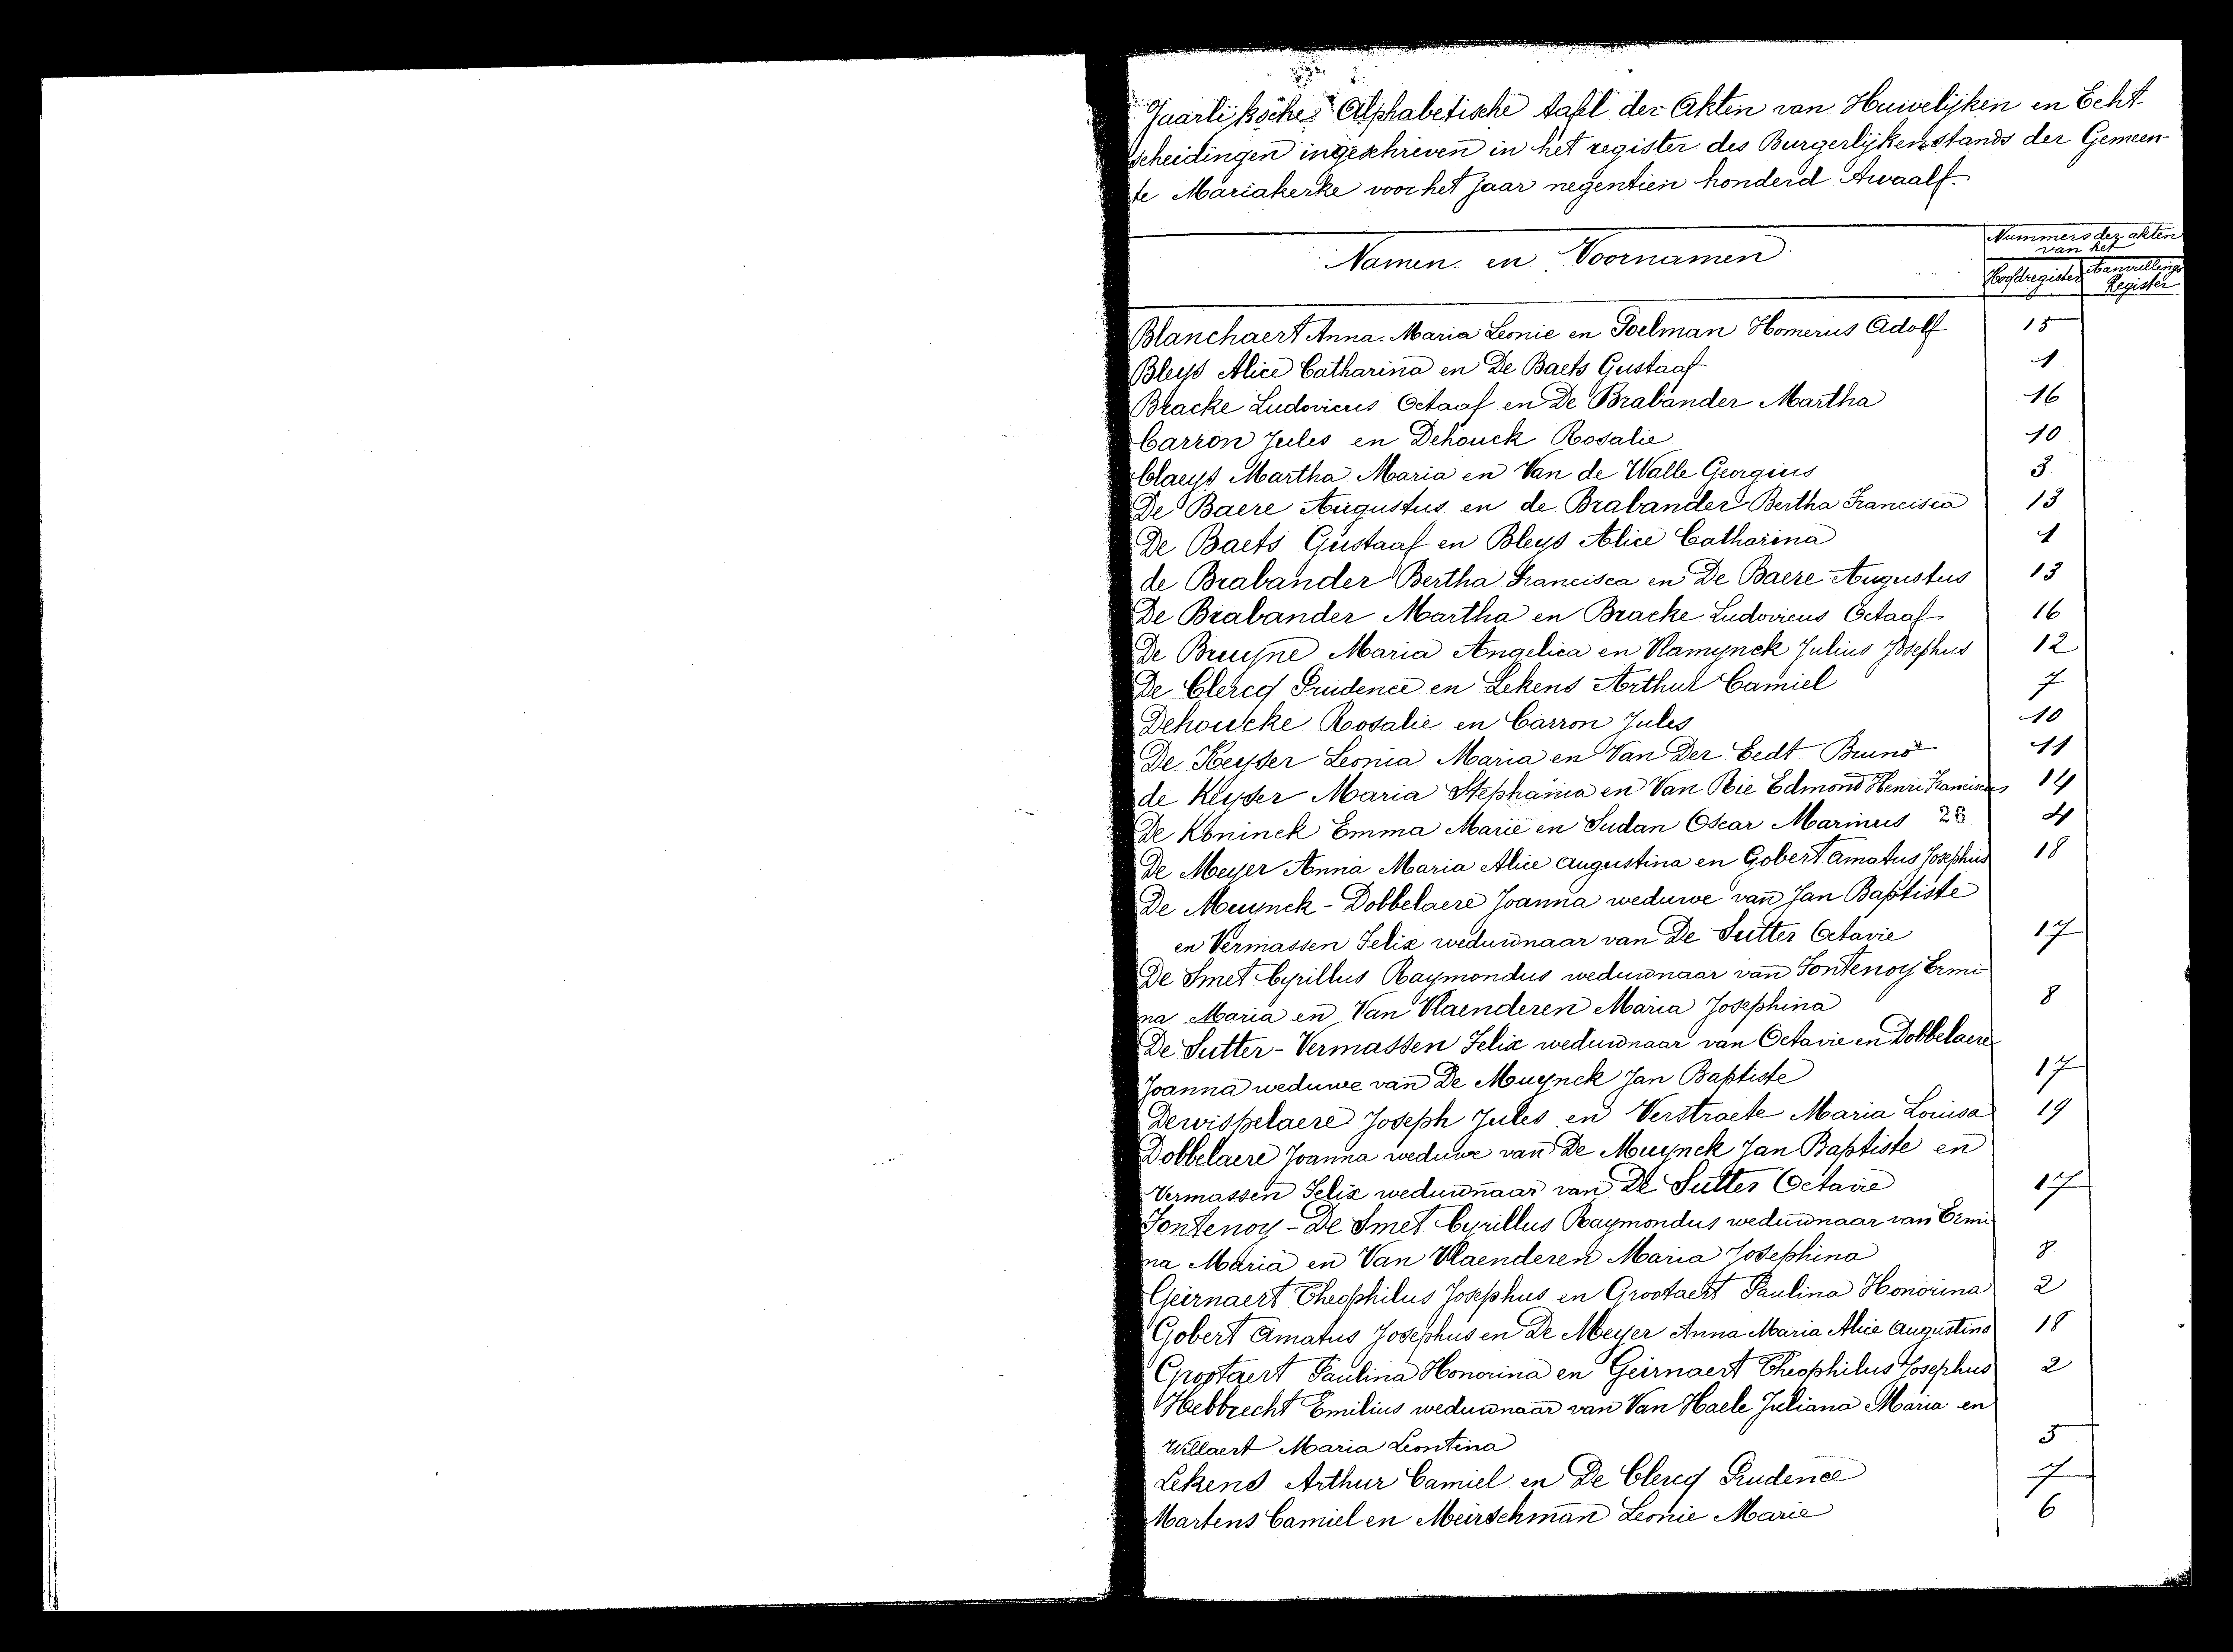 Jaarliksche Alphabetische tafel der Akten van Huwelijken en Echt-
scheidingen ingeschreven in het register des Burgerlijkenstands der Gemeen-
te Mariakerke voor het jaar negentien honderd twaalf.
Namen en Voornamen
Nummers der akten
van het
Hoofdregister
Aanvullings
Register
Blanchaert Anna Maria Leonie en Poelman Homerus Adolf 15
Bleys Alice Catharina en De Baets Gustaaf 1
Bracke Ludovicus Octaaf en De Brabander Martha 16
Carron Jules en Dehouck Rosalie 10
Claeys Martha Maria en Van de Walle Georgius 3
De Baere Augustus en de Brabander Bertha Francisca 13
De Baets Gustaaf en Bleys Alice Catharina 1
de Brabander Bertha Francisca en De Baere Augustus 13
De Brabander Martha en Bracke Ludovicus Octaaf 16
De Bruyne Maria Angelica en Vlamynck Julius Josephus 12
De Clercq Prudence en Lekens Arthur Camiel 7
Dehoucke Rosalie en Carron Jules 10
De Keyser Leonia Maria en Van Der Eedt Bruno 11
de Keyser Maria Stephania en Van Rie Edmond Henri Franciscus 14
De Koninck Emma Marie en Sudan Oscar Marinus 26 4
De Meyer Anna Maria Alice Augustina en Gobert Amatus Josephus 18
De Muynck - Dobbelaere Joanna weduwe van Jan Baptiste
en Vermassen Felix weduwnaar van De Sutter Octavie 17
De Smet Cyrillus Raymondus weduwnaar van Fontenoy Ermi-
na Maria en Van Vlaenderen Maria Josephina 8
De Sutter - Vermassen Felix weduwnaar van Octavie en Dobbelaere
Joanna weduwe van De Muynck Jan Baptiste 17
Dewispelaere Joseph Jules en Verstraete Maria Louisa 19
Dobbelaere Joanna weduwe van De Muynck Jan Baptiste en
Vermassen Felix weduwnaar van De Sutter Octavie 17
Fontenoy - De Smet Cyrillus Raymondus weduwnaar van Ermi
na Maria en Van Vlaenderen Maria Josephina 8
Geirnaert Theophilus Josephus en Grootaert Paulina Honorina 2
Gobert Amatus Josephus en De Meyer Anna Maria Alice Augustina 18
Grootaert Paulina Honorina en Geirnaert Theophilus Josephus 2
Hebbrecht Emilius weduwnaar van Van Haele Juliana Maria en
Willaert Maria Leontina 5
Lekens Arthur Camiel en De Clercq Prudence 7
Martens Camiel en Meirschman Leonie Marie 6